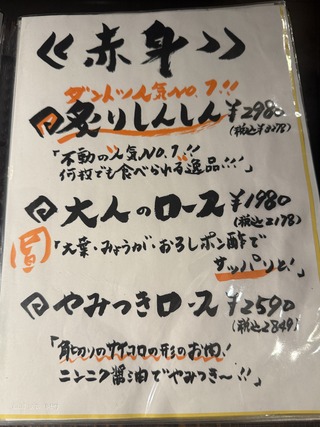 ≪赤身≫
ダントツ人気NO.1!!
炙りしんしん ¥2980
(税込¥3278)
「不動の人気NO.1!!
何枚でも食べられる逸品!!!」
大人のロース ¥1980
(税込2178)
「大葉・みょうが・おろしポン酢で
サッパリと!」
やみつきロース ¥2590
(税込2849)
「角切りのサイコロの形のお肉!
ニンニク醤油でやみつき〜!!」